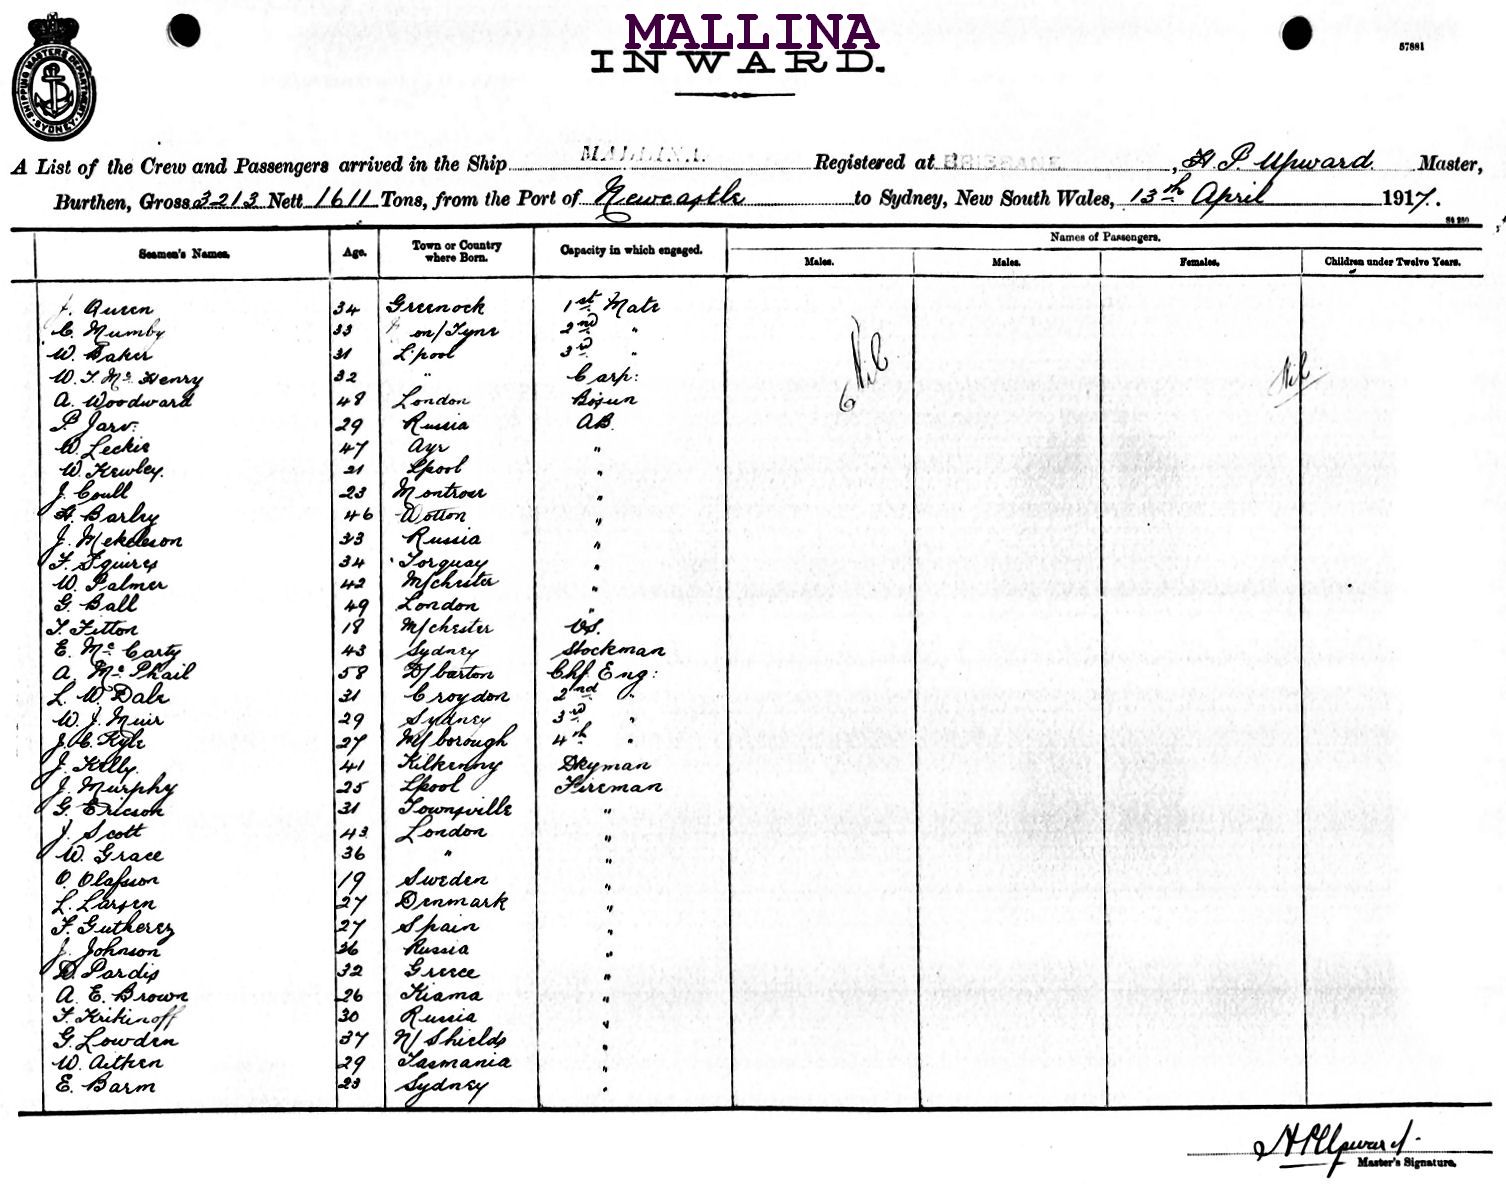 MALLINA
INWARD.
57881
SHIPPING MASTERS DEPARTMENT SYDNEY
A List of the Crew and Passengers arrived in the Ship MALLINA. Registered at BRISBANE, H P Upward Master,
Burthen, Gross 3213 Nett 1611 Tons, from the Port of Newcastle to Sydney, New South Wales, 13th April 1917.
Seamen's Names. Age. Town or Country where Born. Capacity in which engaged. Names of Passengers.
Males. Males. Females. Children under Twelve Years.
J. Queen 34 Greenock 1st Mate
C. Mumby 33 on/Tyne 2nd "
W. Baker 31 L'pool 3rd "
W. T. Mc Henry 32 " Carp:
A. Woodward 48 London Bosun
P. Jarv: 29 Russia AB.
W. Leckie 47 Ayr "
W. Kewley. 21 Lpool "
J. Coull 23 Montrose "
H. Barley 46 Wotton "
J. Mekeleson 33 Russia "
F. Squires 34 Torquay "
W. Palmer 42 M/chester "
G. Ball 49 London "
T. Fitton 18 M/chester OS.
E. Mc Carty 43 Sydney Stockman
A. Mc Phail 58 D/barton Chf Eng:
L. W. Dale 31 Croydon 2nd "
W. J. Muir 29 Sydney 3rd "
J. C. Kyle 27 M/borough 4th "
J. Kelly. 41 Kilkenny Dkyman
J. Murphy 25 Lpool Fireman
G. Ericson 31 Townsville "
J. Scott 43 London "
W. Grace 36 " "
O. Olafsson 19 Sweden "
L. Larsen 27 Denmark "
F. Gutherez 27 Spain "
J. Johnson 36 Russia "
D. Pardis 32 Greece "
A. E. Brown 26 Kiama "
F. Kritinoff 30 Russia "
G. Lowden 37 N/Shields "
W. Aitken 29 Tasmania "
E. Barm 23 Sydney "
Nil
Nil
H P Upward.
Master's Signature.